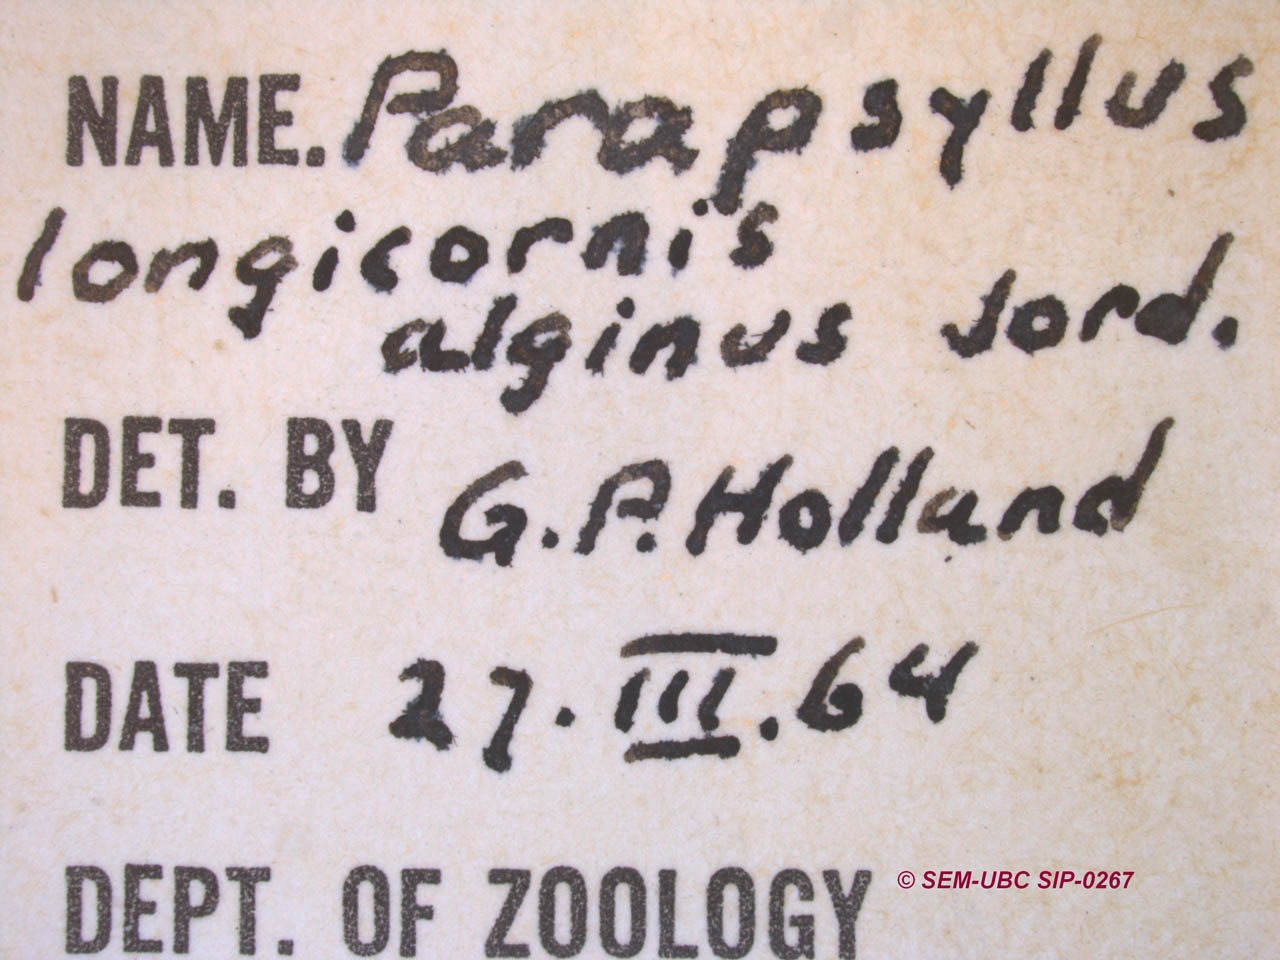 NAME. Parapsyllus
longicornis
alginus Jord.
DET. BY G.P. Holland
DATE 27.III.64
DEPT. OF ZOOLOGY
© SEM-UBC SIP-0267